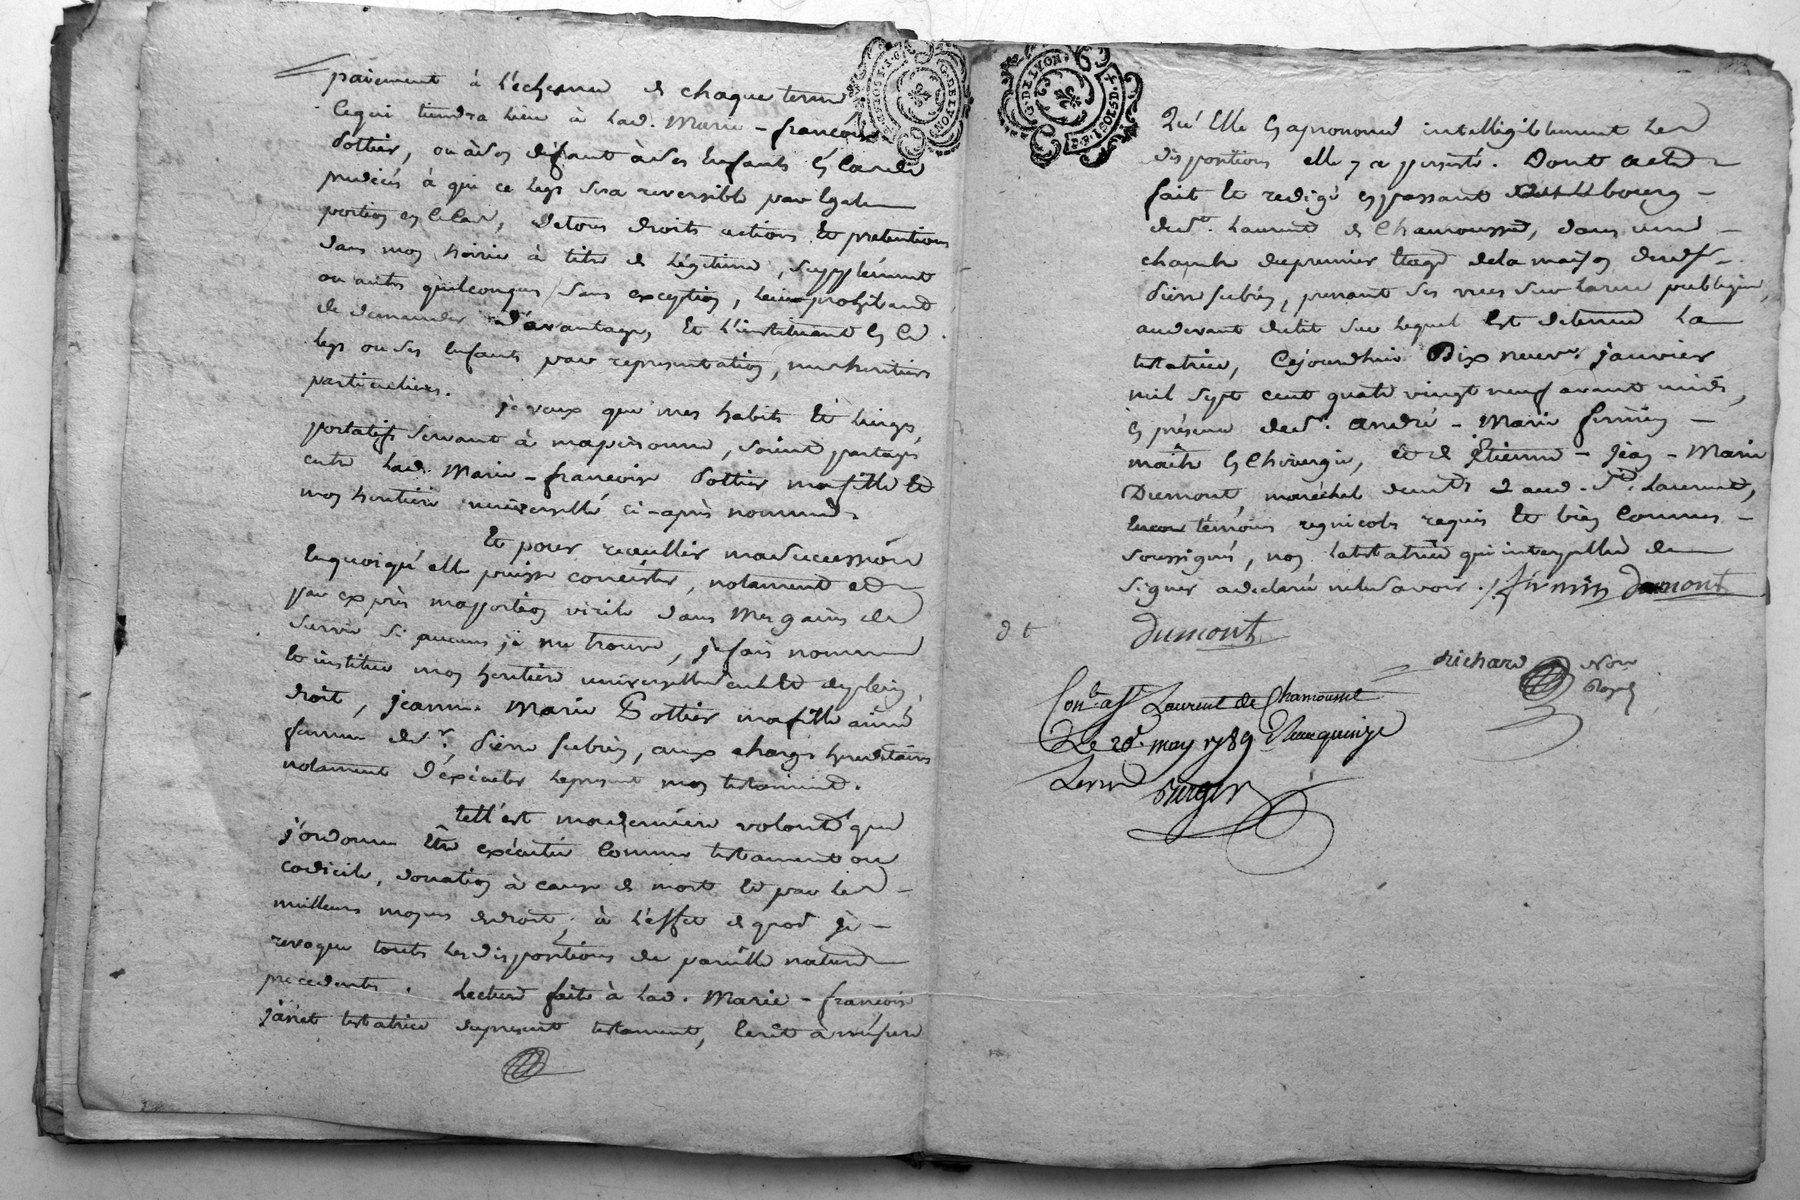 paiement à l'echeance de chaque terme
Ce qui tiendra lieu à lad. Marie - françoise
Pottier, ou à son défaut à ses Enfants En Cas de
predécés à qui ce legs sera reversible par Egale
portion en ce Cas, de tous droits actions Et pretentions
dans mon hoirie à titre de Légitime, Supplément
ou autres quelconques Sans exception, leur prohibant
de demander d'avantage, Et L'instituant En Ce
legs ou ses Enfants par representation, mes heritiers
particuliers. je veux que mes habits Et linges
portatifs Servant à ma personne, soient partagés
entre Lad. Marie - françoise Pottier ma fille Et
mon heritiere universelle ci-après nommée
Et pour recueillir ma Succession
En quoi qu'elle puisse consister, notament Et
par exprès ma portion virile dans mes gains de
Survie Si aucuns je me trouve, je fais nomme
Et institue mon heritiere universelle de plein
droit, jeanne Marie Pottier ma fille ainée
femme de Sr. Pierre Subrin, aux charges hereditaires
notament d'éxécuter le present mon testament.
tell'est ma derniere volonté que
j'ordonne Etre exécutée Comme testament ou
codicile, donation à cause de mort Et par les
meilleurs moyens de droit, à l'effet de quoi je
revoque toutes les dispositions de pareille nature
precedentes. Lecture faite à Lad. Marie - françoise
janet testatrice du present testament, Ecrit à mésure
63
G. DE LYON
Qu'Elle En a prononcé intelligiblement Les
dispositions elle y a persisté. Dont acte
fait Et redigé En passant bourg
de St. Laurent de Chamousset, dans une
chambre du premier Etage de la maison dud. Sr.
Pierre Subrin, prenant ses vues Sur la rue publique,
au devant du lit Sur lequel Est detenue La
testatrice, Cejourdhui Dix neuvme. janvier
mil sept cent quatre vingt neuf avant midi,
En présence de Sr. André - Marie firmin
maitre En Chirurgie, et de Etienne - jean - Marie
Dumont maréchal demts. aud. St. Laurent,
témoins regnicoles requis Et bien Connus
soussignés, non la testatrice qui interpellée de
signer a declaré ne le Savoir. firmin dumont
dumont
Richard Nore
Royal
Conlé. a St Laurent de Chamousset
Le 20. may 1789 Reçu quinze